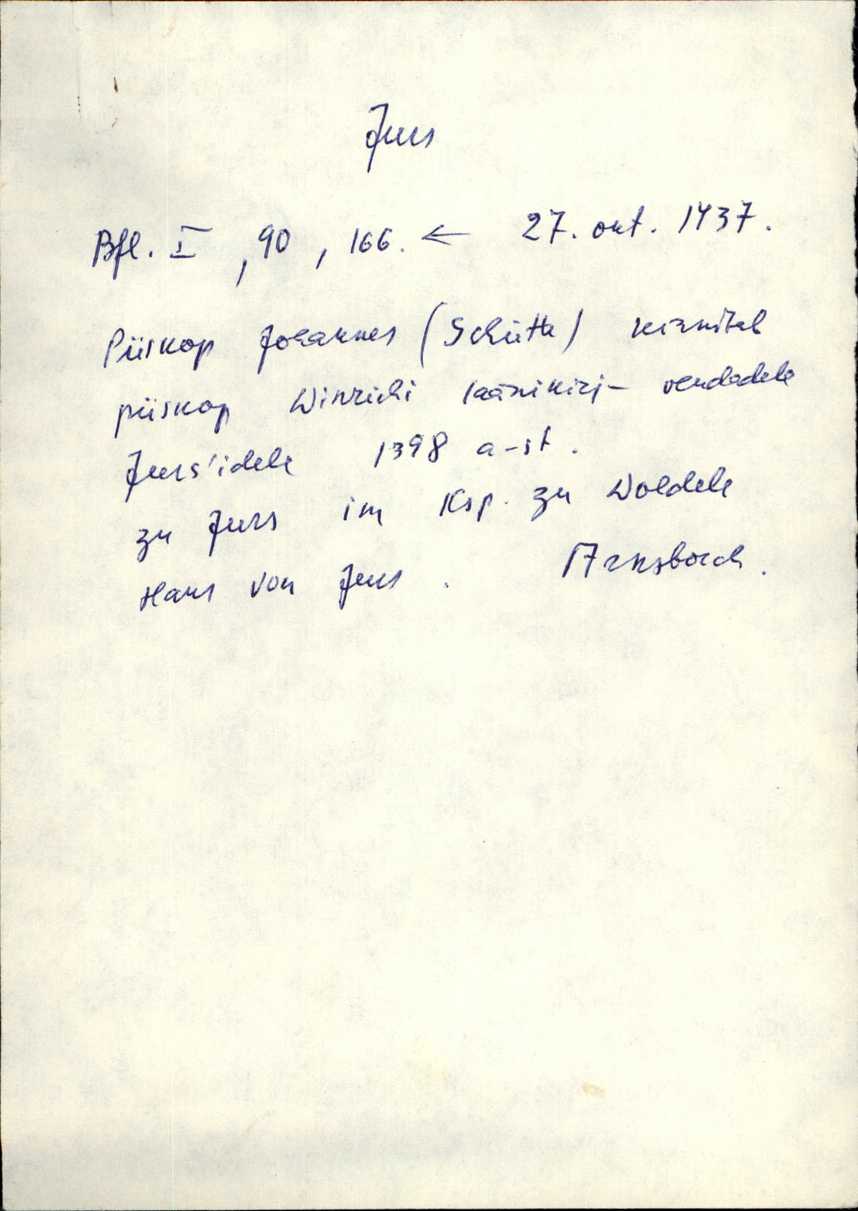 Jurs
Bfl. I, 90, 166. ← 27. okt. 1437.
Piiskop Johannes (Schutte) kinnitab
piiskop Winrichi läänikirj- vendadele
Jurs'idele 1398 a-st.
zu Jurs im Ksp. zu Woldele
Hans von Jurs.